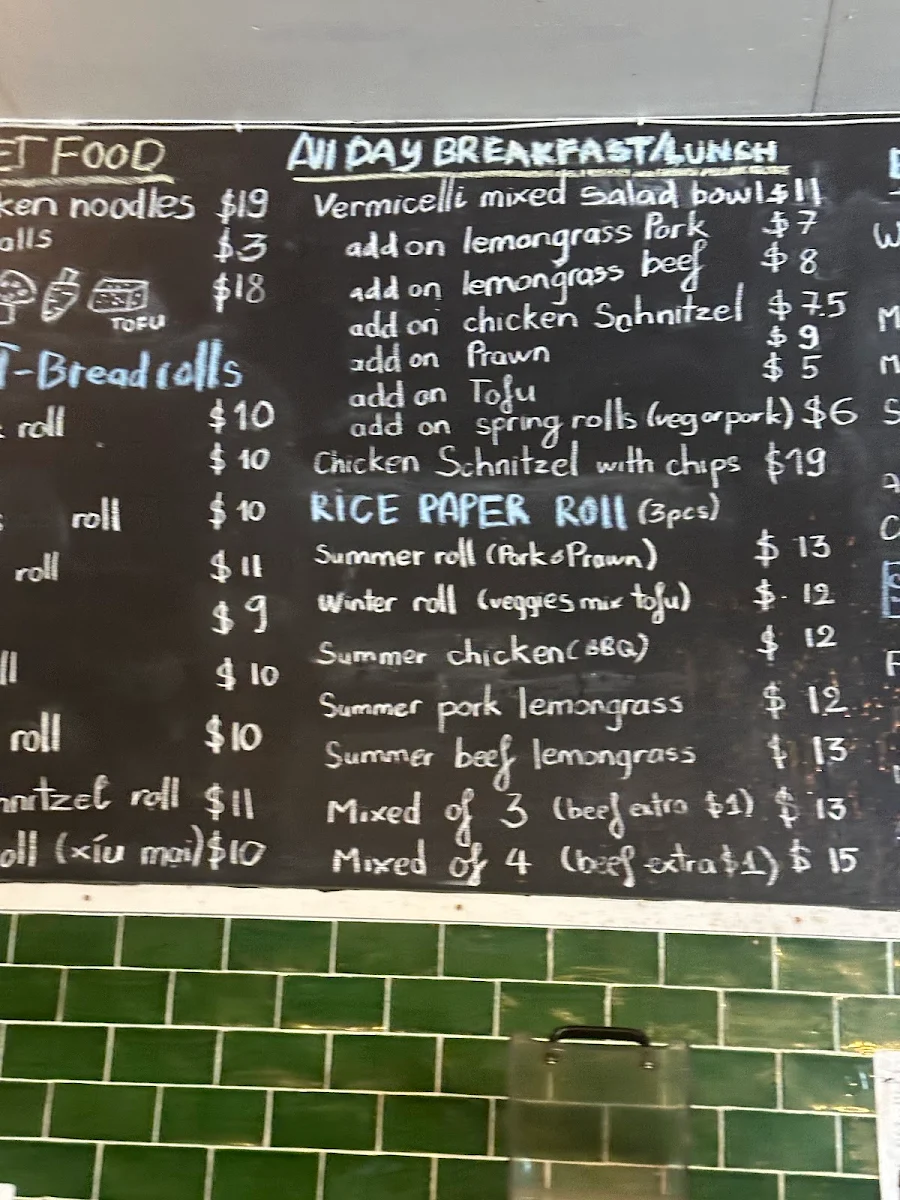 FOOD
noodles $19
$3
$18
TOFU
Bread rolls
roll $10
$10
roll $10
roll $11
$9
$10
roll $10
roll $11
(xíu mại) $10
All DAY BREAKFAST/LUNCH
Vermicelli mixed Salad bowl $11
add on lemongrass Pork $7
add on lemongrass beef $8
add on chicken Schnitzel $7.5
add on Prawn $9
add on Tofu $5
add on spring rolls (veg or pork) $6
Chicken Schnitzel with chips $19
RICE PAPER ROLL (3pcs)
Summer roll (Pork & Prawn) $13
Winter roll (veggies mix tofu) $12
Summer chicken (BBQ) $12
Summer pork lemongrass $12
Summer beef lemongrass $13
Mixed of 3 (beef extra $1) $13
Mixed of 4 (beef extra $1) $15